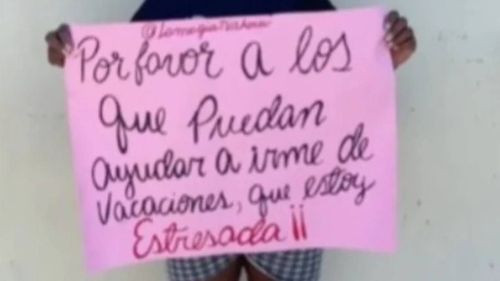 Por favor a los
que Puedan
ayudar a irme de
Vacaciones, que estoy
Estresada ¡¡